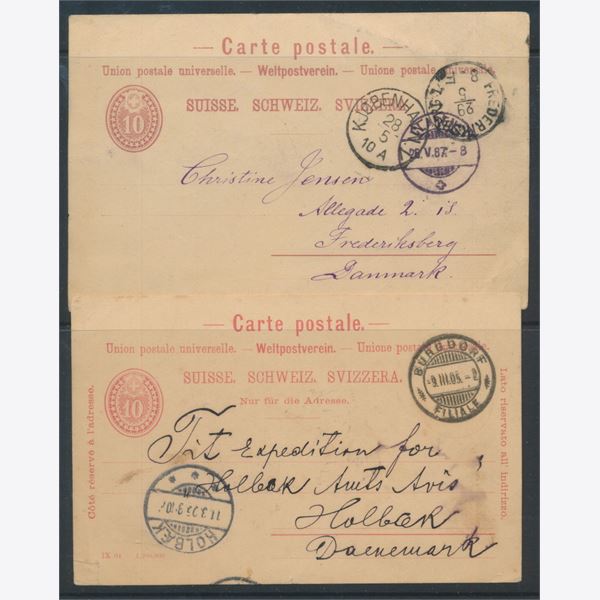 Carte postale.
Union postale universelle. — Weltpostverein. — Unione postale
SUISSE. SCHWEIZ. SVIZZERA.
10
KJØBENHAVN
28
5
10 A
29
5
26.V.87.-8
Christine Jensen
Allegade 2. is.
Frederiksberg.
Danmark.
Carte postale.
Union postale universelle. — Weltpostverein. — Unione postale
SUISSE. SCHWEIZ. SVIZZERA.
Nur für die Adresse.
10
Côté réservé à l'adresse.
Lato riservato all' indirizzo.
BURGDORF
-9.III.05.-
FILIALE
Tit Expedition for
Holbæk Amts Avis,
Holbæk
Daenemark
HOLBÆK